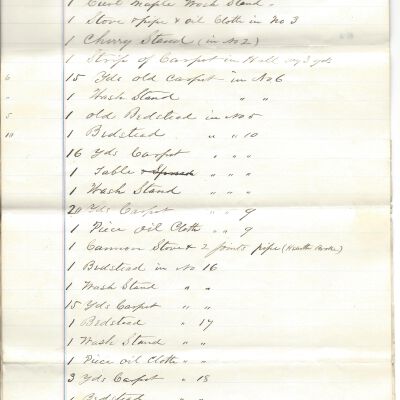 1 Curl Maple Wash Stand "
1 Stove & pipe & oil Cloth in No 3
1 Cherry Stand (in No 2)
1 Strip of Carpet in Hall 3 yds
6 15 Yds old Carpet in No 6
" 1 Wash Stand " "
5 1 old Bedstead in No 5
10 1 Bedstead " " 10
16 Yds Carpet " " "
1 Table & Spread " " "
1 Wash Stand " " "
20 Yds Carpet " " 9
1 Piece Oil Cloth " " 9
1 Cannon Stove & 2 joints pipe (Hearth Broke)
1 Bedstead in No 16
1 Wash Stand " "
15 Yds Carpet " "
1 Bedstead " 17
1 Wash Stand " "
1 Piece oil Cloth " "
3 Yds Carpet " 18
1 Bedstead " "